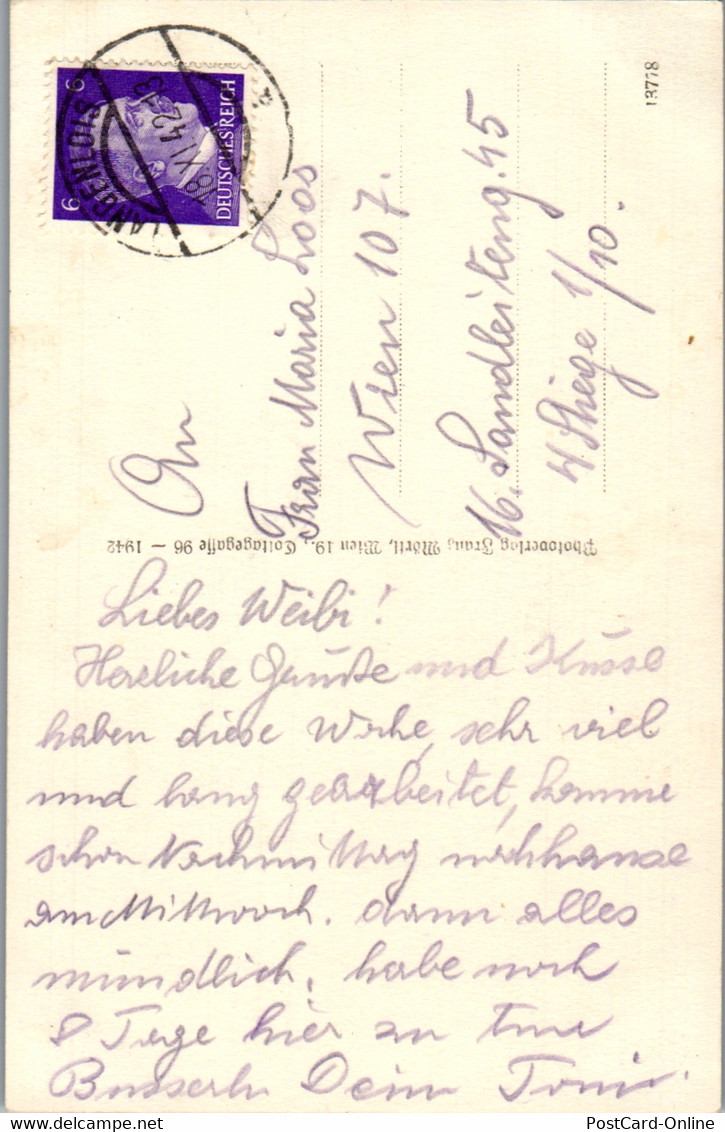 6 6
DEUTSCHES REICH
LANGENLOIS
18.XI.42-13
a
13778
An
Frau Maria Loos
Wien 107.
16. Sandleiteng. 45
4 Stiege 1/10.
Photoverlag Franz Mörtl, Wien 19., Cottagegasse 96 — 1942
Liebes Weibi!
Herzliche Grüsse und Küsse
haben diese Woche, sehr viel
und lang gearbeitet, komme
schon Nachmittag nachhause
am Mittwoch. dann alles
mündlich. habe noch
8 Tage hier zu tun
Busserln Dein Toni.
PostCard-Online